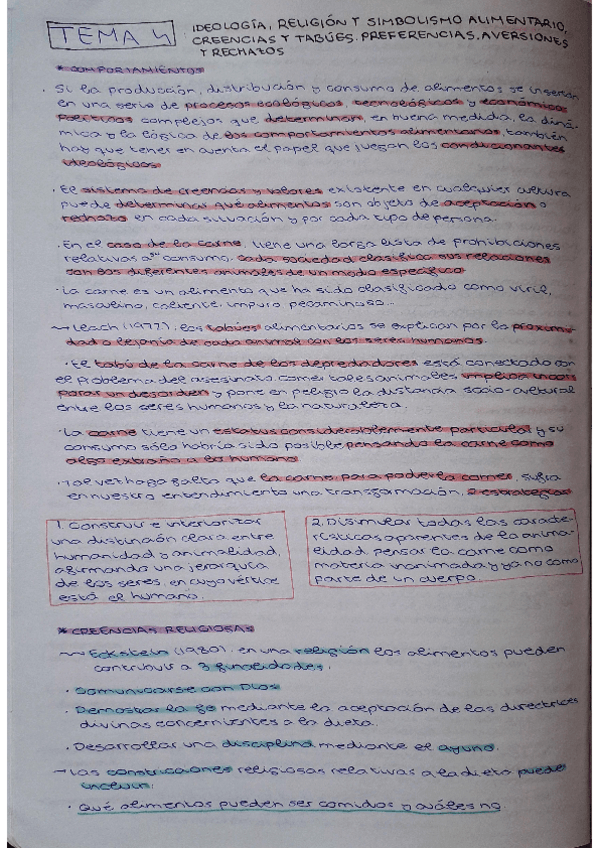 TEMA 4
IDEOLOGÍA, RELIGIÓN Y SIMBOLISMO ALIMENTARIO,
CREENCIAS Y TABÚES. PREFERENCIAS, AVERSIONES
Y RECHAZOS
* COMPORTAMIENTOS
· Si la producción, distribución y consumo de alimentos se insertan
en una serie de procesos ecológicos, tecnológicos y económico
políticos complejos que determinan, en buena medida, la diná-
mica y la lógica de los comportamientos alimentarios, también
hay que tener en cuenta el papel que juegan los condicionantes
ideológicos.
· El sistema de creencias y valores existente en cualquier cultura
puede determinar qué alimentos son objeto de aceptación o
rechazo en cada situación y por cada tipo de persona.
· En el caso de la carne, tiene una larga lista de prohibiciones
relativas a su consumo. Cada sociedad clasifica sus relaciones
con los diferentes animales de un modo específico.
· La carne es un alimento que ha sido clasificado como viril,
masculino, caliente, impuro pecaminoso...
Leach (1977): los tabúes alimentarios se explican por la proximi-
dad o lejanía de cada animal con los seres humanos.
· El tabú de la carne de los depredadores está conectado con
el problema del asesinato. Comer tales animales implica incor-
porar un desorden y pone en peligro la distancia socio-cultural
entre los seres humanos y la naturaleza.
· La carne tiene un estatus considerablemente particular y su
consumo sólo habría sido posible pensando la carne como
algo extraño a lo humano.
· Tal vez haga falta que la carne para poderla comer, sufra
en nuestro entendimiento una transformación, 2 estrategias
1. Construir e interiorizar
una distinción clara entre
humanidad y animalidad,
afirmando una jerarquía
de los seres, en cuyo vértice
está el humano.
2. Disimular todas las caracte-
rísticas aparentes de la anima-
lidad, pensar la carne como
materia inanimada y ya no como
parte de un cuerpo.
* CREENCIAS RELIGIOSAS
Eckstein (1980): en una religión los alimentos pueden
contribuir a 3 finalidades:
· Comunicarse con Dios
· Demostrar la fe mediante la aceptación de las directrices
divinas concernientes a la dieta.
· Desarrollar una disciplina mediante el ayuno.
→ Las constricciones religiosas relativas a la dieta pueden
incluir:
· Qué alimentos pueden ser comidos y cuáles no.